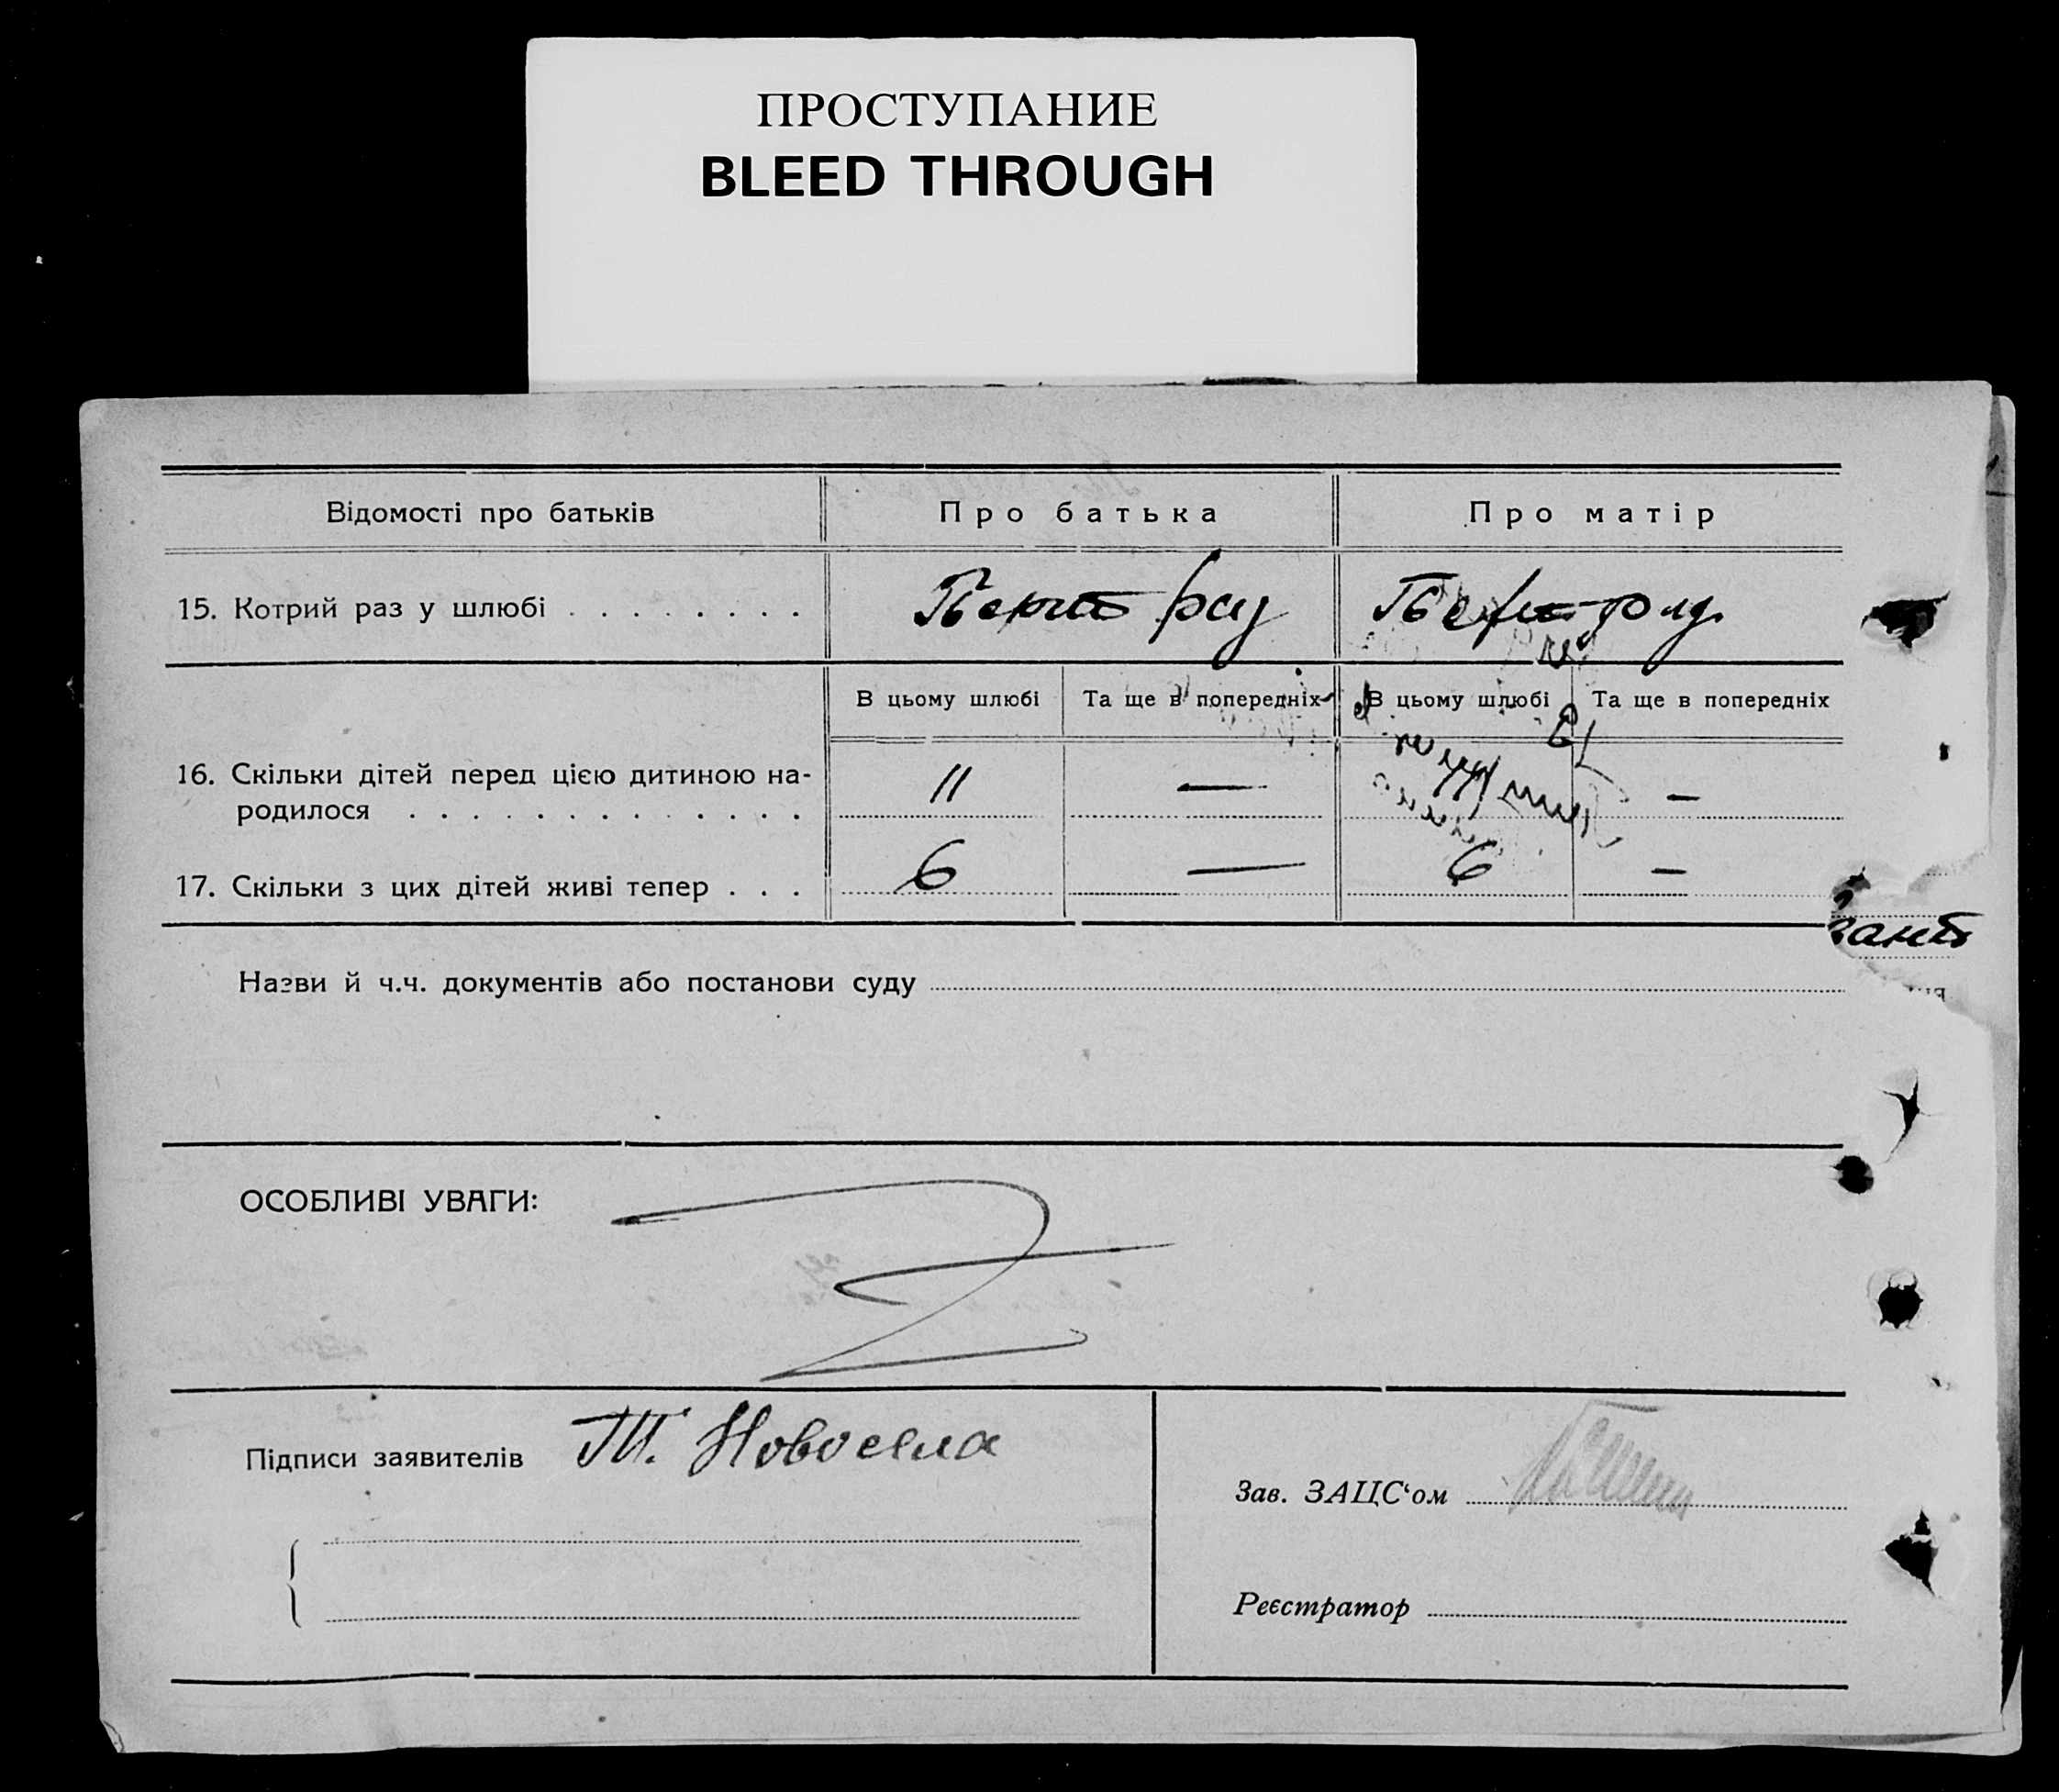 ПРОСТУПАНИЕ
BLEED THROUGH
Відомості про батьків Про батька Про матір
15. Котрий раз у шлюбі . . . . . . . раз
В цьому шлюбі Та ще в попередніх В цьому шлюбі Та ще в попередніх
16. Скільки дітей перед цією дитиною на-
родилося . . . . . . . . . . . . . 11 — —
17. Скільки з цих дітей живі тепер . . . 6 — 6 —
Назви й ч.ч. документів або постанови суду
ОСОБЛИВІ УВАГИ:
Підписи заявителів Т. Новосела
Зав. ЗАЦС‘ом
Реєстратор